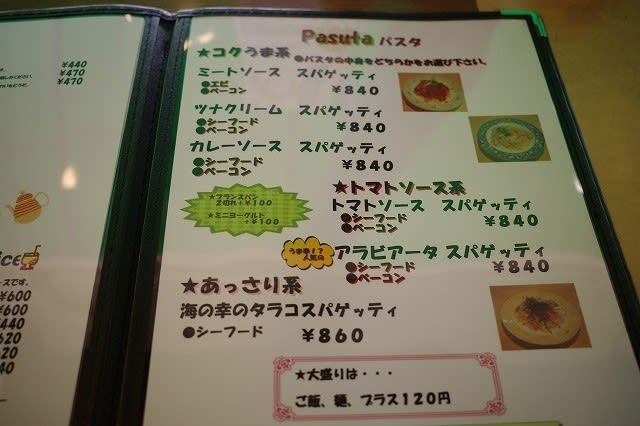 Pasuta パスタ
★コクうま系 ●パスタの中身をどちらかをお選び下さい。
ミートソース スパゲッティ
●エビ
●ベーコン ￥840
ツナクリーム スパゲッティ
●シーフード
●ベーコン ￥840
カレーソース スパゲッティ
●シーフード
●ベーコン ￥840
★フランスパン
2切れ+￥100
★ミニヨーグルト
+￥100
★トマトソース系
トマトソース スパゲッティ
●シーフード
●ベーコン ￥840
うま辛！？
人気の
アラビアータ スパゲッティ
●シーフード
●ベーコン ￥840
★あっさり系
海の幸のタラコスパゲッティ
●シーフード ￥860
★大盛りは・・・
ご飯、麺、プラス120円
￥440
￥470
￥470
ice
ースです。
￥600
￥600
440
620
620
40